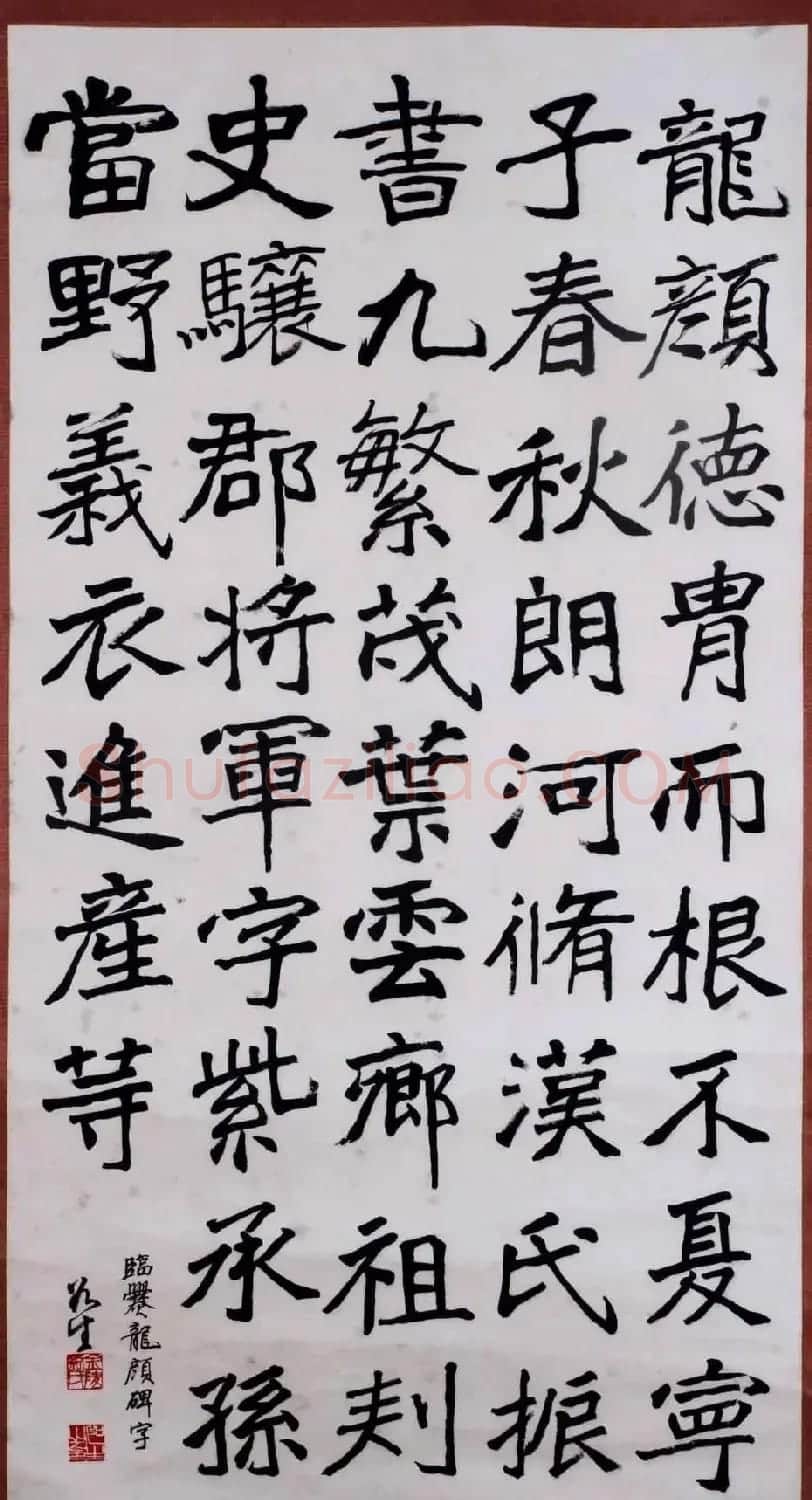 龍顏德胄而根不夏寧
子春秋朗河脩漢氏振
書九繁茂葉雲鄉祖刾
史驤郡將軍字紫承孫
當野義衣進產等
臨爨龍顏碑字
Shufaziliao.COM